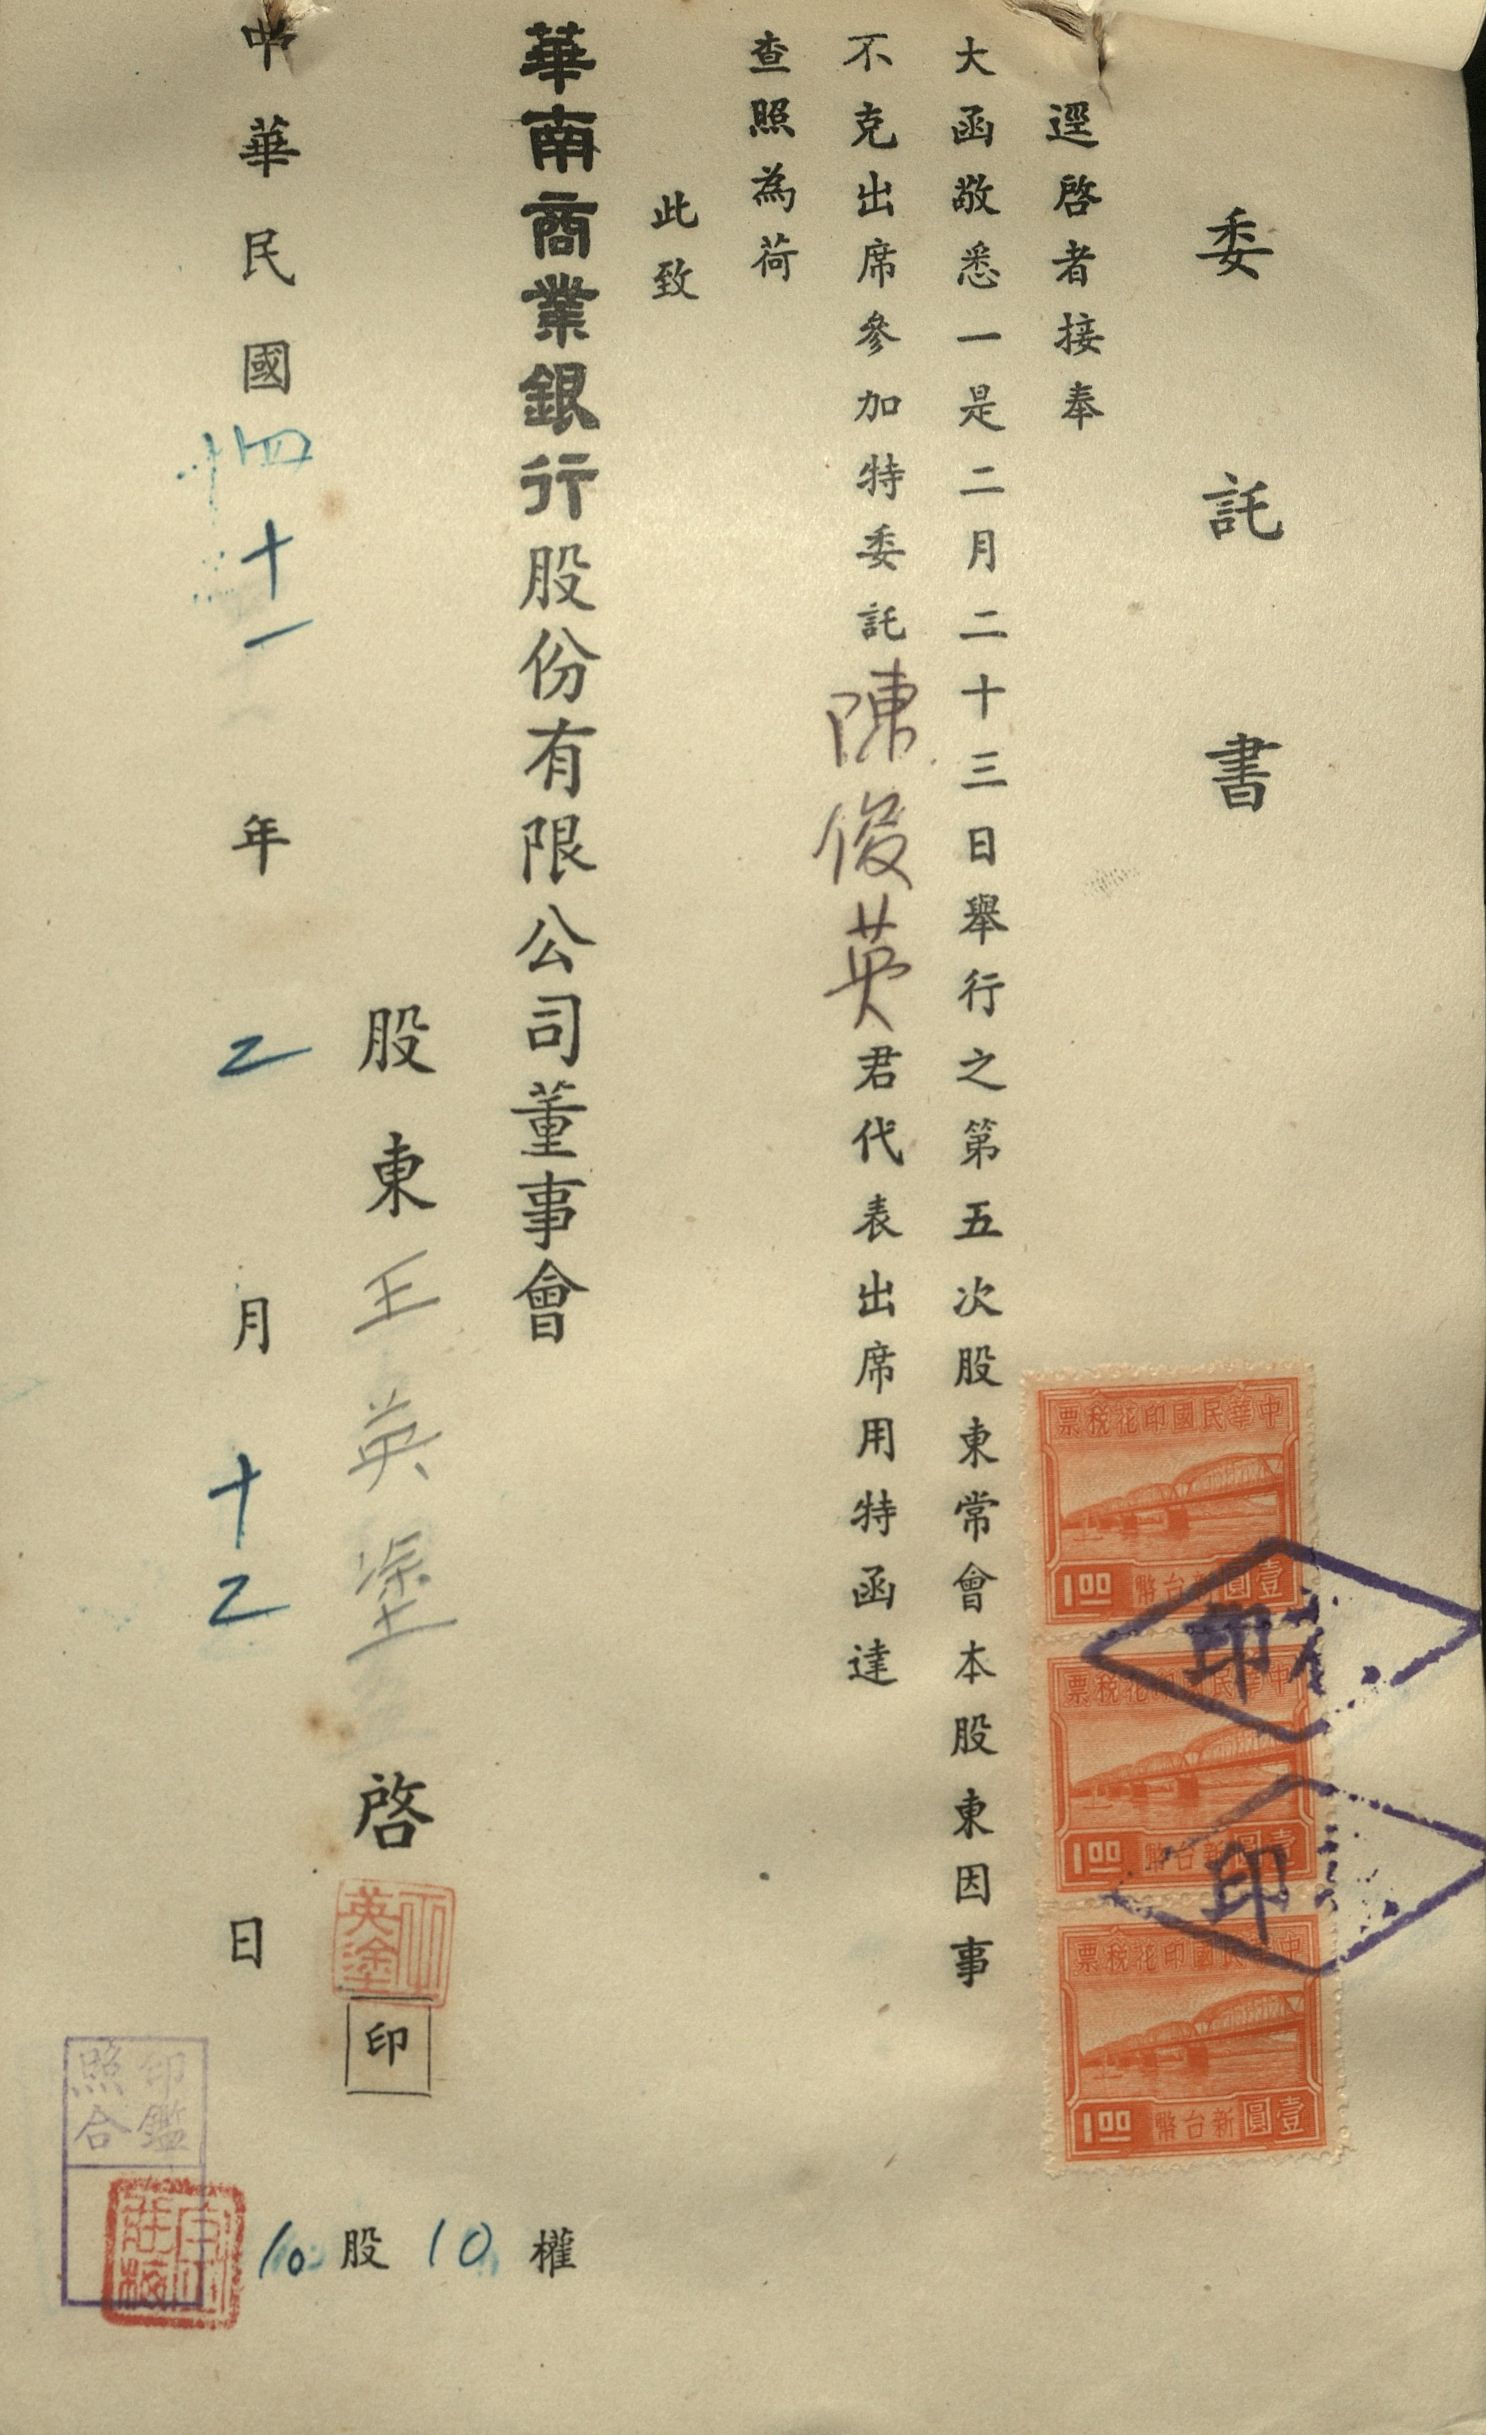 委託書
逕啓者接奉
大函敬悉一是二月二十三日舉行之第五次股東常會本股東因事
不克出席參加特委託陳俊英君代表出席用特函達
查照為荷
此致
華南商業銀行股份有限公司董事會
股東王英塗啓
王英塗
印
中華民國四十一年2月十2日
10股10權
印鑑
照合
中華民國印花稅票
壹圓新台幣
1.00
中華民國印花稅票
壹圓新台幣
1.00
中華民國印花稅票
壹圓新台幣
1.00
印
印